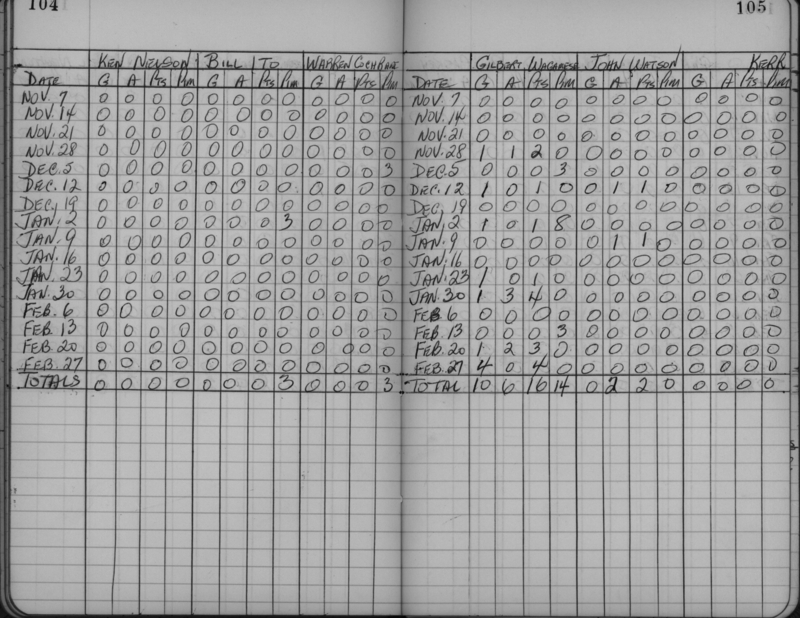 104
KEN NIENSON BILL TO WARREN COCHRANE
DATE G A Pts Pim G A Pts Pim G A Pts Pim
NOV. 7 0 0 0 0 0 0 0 0 0 0 0 0
NOV. 14 0 0 0 0 0 0 0 0 0 0 0 0
NOV. 21 0 0 0 0 0 0 0 0 0 0 0 0
NOV. 28 0 0 0 0 0 0 0 0 0 0 0 0
DEC. 5 0 0 0 0 0 0 0 0 0 0 0 3
DEC. 12 0 0 0 0 0 0 0 0 0 0 0 0
DEC. 19 0 0 0 0 0 0 0 0 0 0 0 0
JAN. 2 0 0 0 0 0 0 0 3 0 0 0 0
JAN. 9 0 0 0 0 0 0 0 0 0 0 0 0
JAN. 16 0 0 0 0 0 0 0 0 0 0 0 0
JAN. 23 0 0 0 0 0 0 0 0 0 0 0 0
JAN. 30 0 0 0 0 0 0 0 0 0 0 0 0
FEB. 6 0 0 0 0 0 0 0 0 0 0 0 0
FEB. 13 0 0 0 0 0 0 0 0 0 0 0 0
FEB. 20 0 0 0 0 0 0 0 0 0 0 0 0
FEB. 27 0 0 0 0 0 0 0 0 0 0 0 0
TOTALS 0 0 0 0 0 0 0 3 0 0 0 3
105
GILBERT JOHN WATSON KERR
DATE G A Pts Pim G A Pts Pim G A Pts Pim
NOV. 7 0 0 0 0 0 0 0 0 0 0 0 0
NOV. 14 0 0 0 0 0 0 0 0 0 0 0 0
NOV. 21 0 0 0 0 0 0 0 0 0 0 0 0
NOV. 28 1 1 2 0 0 0 0 0 0 0 0 0
DEC. 5 0 0 0 3 0 0 0 0 0 0 0 0
DEC. 12 1 0 1 0 0 1 1 0 0 0 0 0
DEC. 19 0 0 0 0 0 0 0 0 0 0 0 0
JAN. 2 1 0 1 8 0 0 0 0 0 0 0 0
JAN. 9 0 0 0 0 0 1 1 0 0 0 0 0
JAN. 16 0 0 0 0 0 0 0 0 0 0 0 0
JAN. 23 1 0 1 0 0 0 0 0 0 0 0 0
JAN. 30 1 3 4 0 0 0 0 0 0 0 0 0
FEB 6 0 0 0 0 0 0 0 0 0 0 0 0
FEB. 13 0 0 0 3 0 0 0 0 0 0 0 0
FEB. 20 1 2 3 0 0 0 0 0 0 0 0 0
FEB. 27 4 0 4 0 0 0 0 0 0 0 0 0
TOTAL 10 6 16 14 0 2 2 0 0 0 0 0